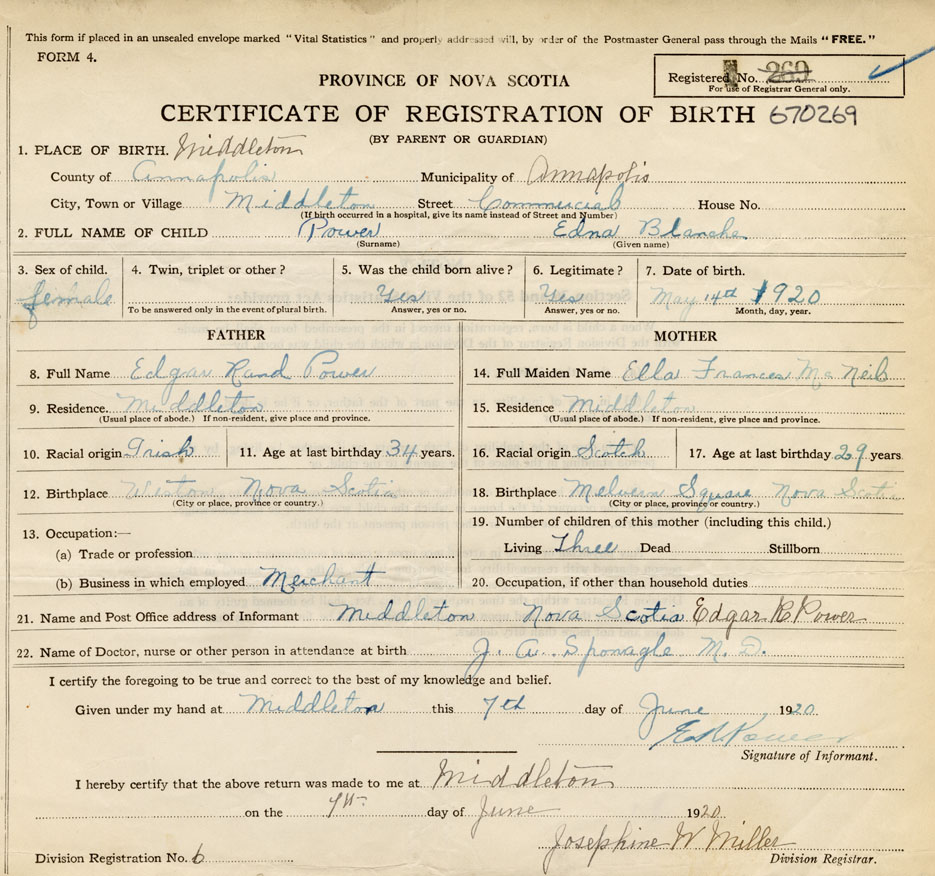 This form if placed in an unsealed envelope marked "Vital Statistics" and properly addressed will, by order of the Postmaster General pass through the Mails "FREE."
FORM 4.
Registered No. 269
For use of Registrar General only.
PROVINCE OF NOVA SCOTIA
CERTIFICATE OF REGISTRATION OF BIRTH 670269
(BY PARENT OR GUARDIAN)
1. PLACE OF BIRTH. Middleton
County of Annapolis Municipality of Annapolis
City, Town or Village Middleton Street Commercial House No.
(If birth occurred in a hospital, give its name instead of Street and Number)
2. FULL NAME OF CHILD Power Edna Blanche
(Surname) (Given name)
3. Sex of child. 4. Twin, triplet or other? 5. Was the child born alive? 6. Legitimate? 7. Date of birth.
female Yes Yes May 14th 1920
To be answered only in the event of plural birth. Answer, yes or no. Answer, yes or no. Month, day, year.
FATHER MOTHER
8. Full Name Edgar Rand Power 14. Full Maiden Name Ella Frances Mc Neil
9. Residence. Middleton 15. Residence Middleton
(Usual place of abode.) If non-resident, give place and province. (Usual place of abode.) If non-resident, give place and province.
10. Racial origin Irish 11. Age at last birthday 34 years. 16. Racial origin Scotch 17. Age at last birthday 29 years
12. Birthplace Nova Scotia 18. Birthplace Melvern Square Nova Scotia
(City or place, province or country.) (City or place, province or country.)
19. Number of children of this mother (including this child.)
13. Occupation:—
Living Three Dead Stillborn
(a) Trade or profession
(b) Business in which employed Merchant 20. Occupation, if other than household duties
21. Name and Post Office address of Informant Middleton Nova Scotia Edgar R Power
22. Name of Doctor, nurse or other person in attendance at birth J. A. Sponagle M. D.
I certify the foregoing to be true and correct to the best of my knowledge and belief.
Given under my hand at Middleton this 7th day of June 1920
E R Power
Signature of Informant.
I hereby certify that the above return was made to me at Middleton
on the 7th day of June 1920
Josephine W Miller
Division Registration No. 6 Division Registrar.